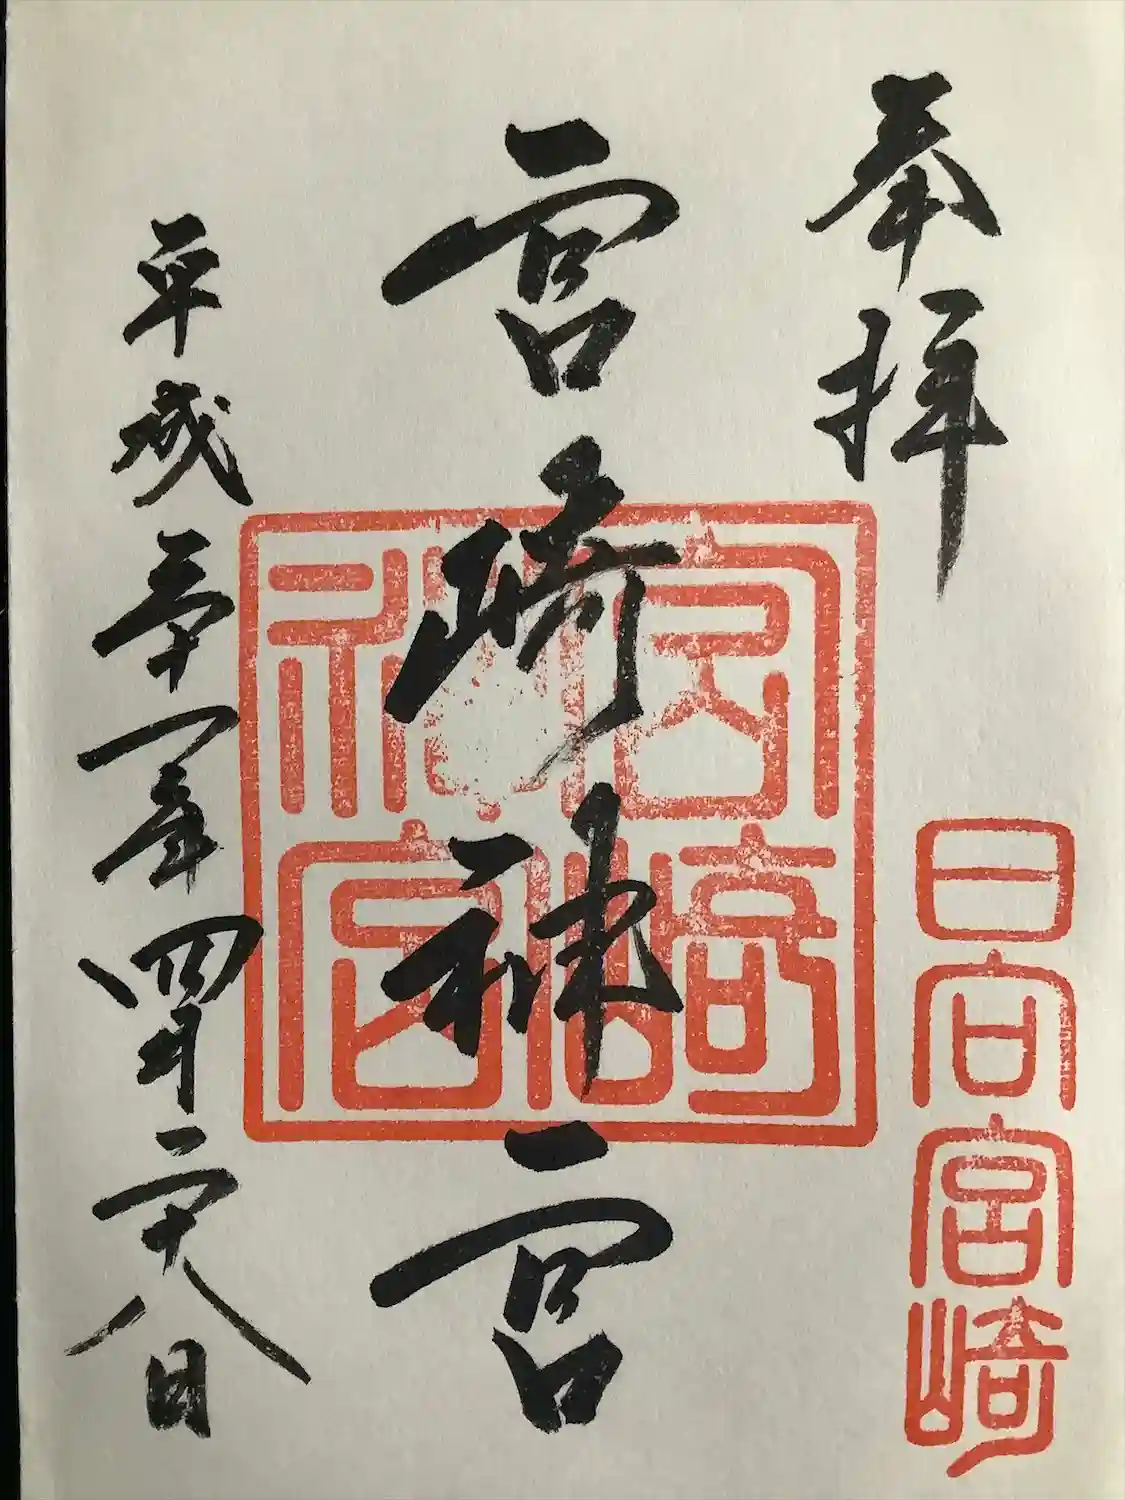 奉拝
日向宮崎
宮崎神宮
宮崎
神宮
平成三十一年四月二十八日